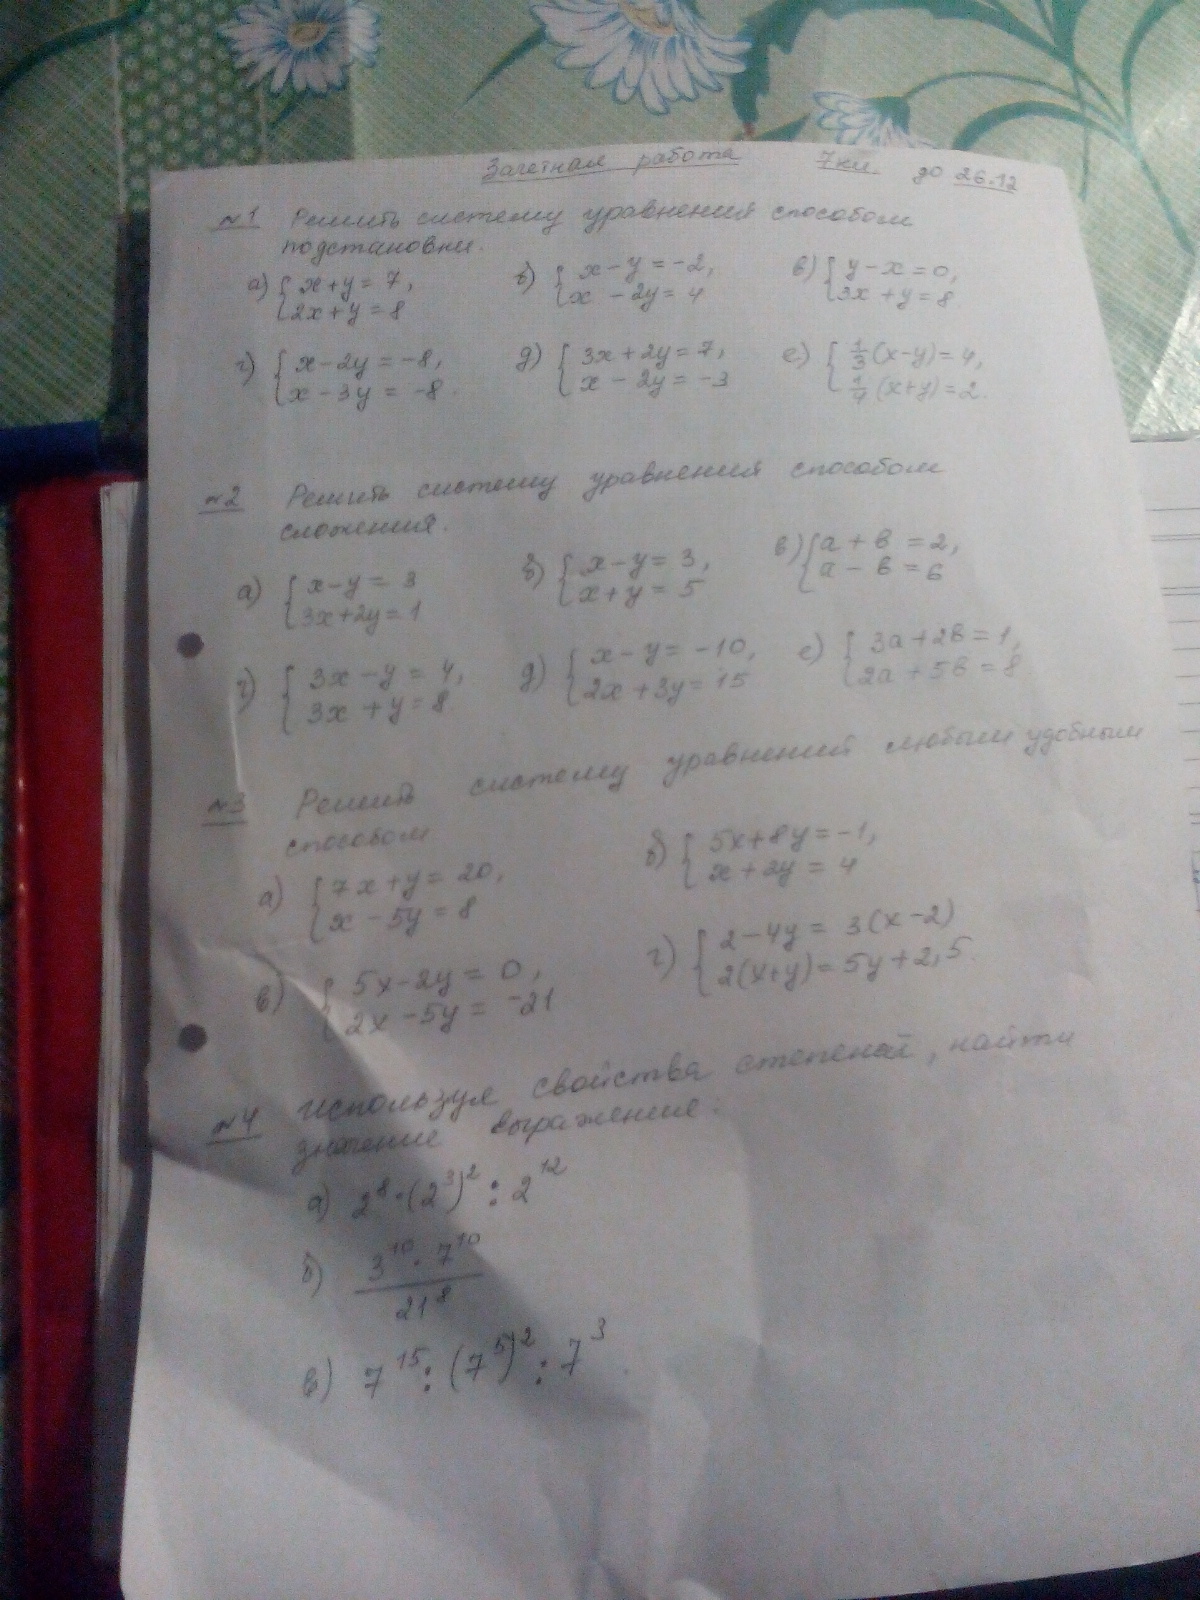 Зачетная работа 7 кл. до 26.12
№1 Решить систему уравнений способом
подстановки.
а) { x+y = 7, б) { x-y = -2, в) { y-x = 0,
2x+y = 8 x - 2y = 4 3x+y = 8.
г) { x-2y = -8, д) { 3x+2y = 7, е) { 1/3 (x-y) = 4,
x-3y = -8. x - 2y = -3 1/4 (x+y) = 2.
№2 Решить систему уравнений способом
сложения.
а) { x-y = 3 б) { x-y = 3, в) { a + b = 2,
3x+2y = 1 x+y = 5 a - b = 6
г) { 3x-y = 4, д) { x-y = -10, е) { 3a+2b = 1,
3x+y = 8 2x+3y = 15 2a+5b = 8
№3 Решить систему уравнений любым удобным
способом
а) { 7x+y = 20, б) { 5x+8y = -1,
x-5y = 8 x+2y = 4
в) { 5x-2y = 0, г) { 2-4y = 3(x-2)
2x-5y = -21 2(x+y) = 5y+2,5.
№4 Используя свойства степеней, найти
значение выражения:
а) 2⁸·(2³)² : 2¹²
б) 3¹⁰·7¹⁰
21⁸
в) 7¹⁵ : (7⁵)² : 7³.